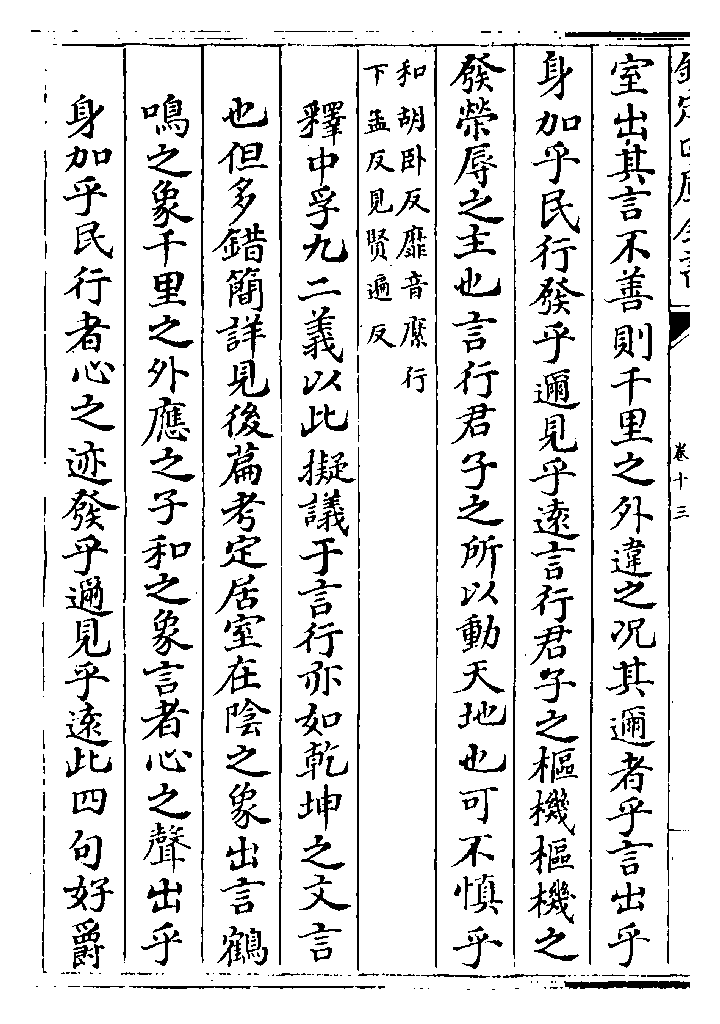 欽定四庫全書
卷十三
室出其言不善則千里之外違之况其邇者乎言出乎
身加乎民行發乎邇見乎遠言行君子之樞機樞機之
發榮辱之主也言行君子之所以動天地也可不慎乎
和胡卧反靡音縻行
下孟反見賢遍反
釋中孚九二義以此擬議于言行亦如乾坤之文言
也但多錯簡詳見後篇考定居室在陰之象出言鶴
鳴之象千里之外應之子和之象言者心之聲出乎
身加乎民行者心之迹發乎邇見乎遠此四句好爵